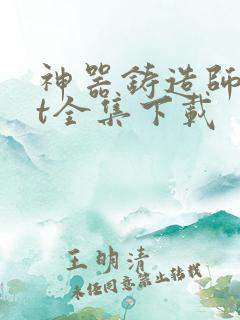 神器铸造師
t全集下载
王明清
未经同意禁止转载